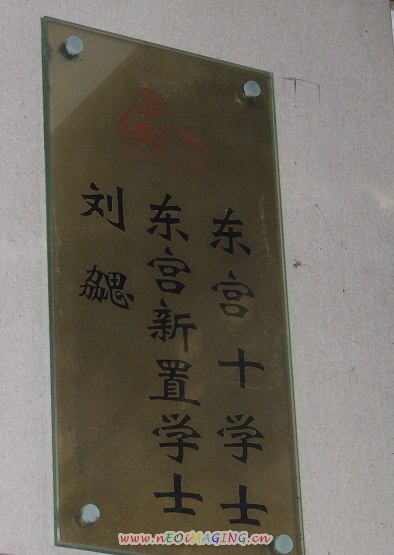 东宫十学士
东宫新置学士
刘勰
www.nEOiMAGING.cn